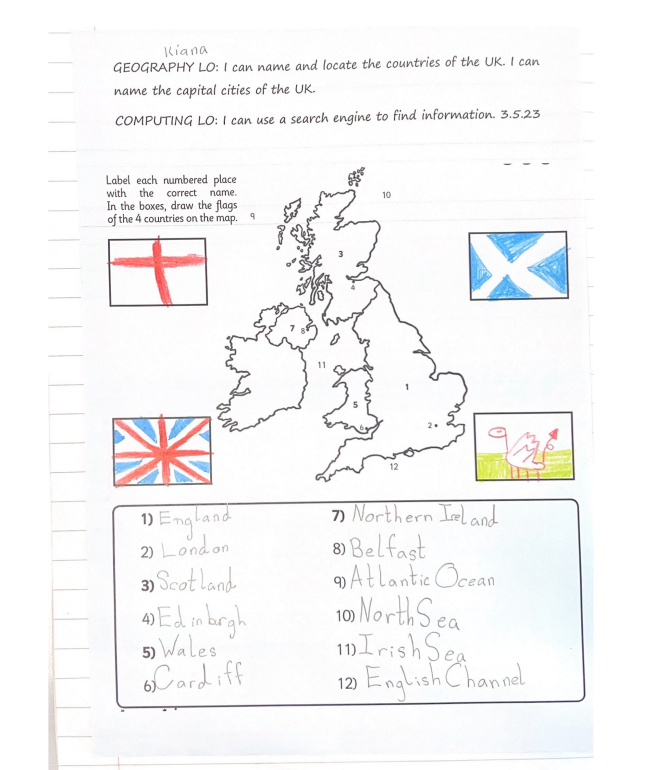 Kiana
GEOGRAPHY LO: I can name and locate the countries of the UK. I can
name the capital cities of the UK.
COMPUTING LO: I can use a search engine to find information. 3.5.23
Label each numbered place
with the correct name.
In the boxes, draw the flags
of the 4 countries on the map.
9
10
3
4
7
8
11
1
5
2
6
12
1) England
2) London
3) Scotland
4) Edinbrgh
5) Wales
6) Cardiff
7) Northern Ireland
8) Belfast
9) Atlantic Ocean
10) North Sea
11) Irish Sea
12) English Channel